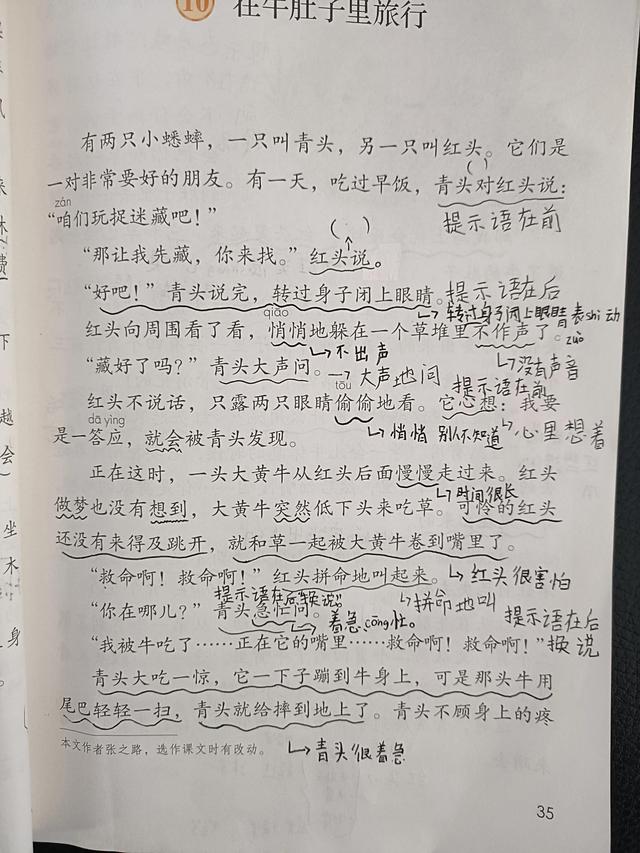 10 在牛肚子里旅行
有两只小蟋蟀，一只叫青头，另一只叫红头。它们是
一对非常要好的朋友。有一天，吃过早饭，青头对红头说：
( )
zán
“咱们玩捉迷藏吧！”
提示语在前
( )
“那让我先藏，你来找。”红头说。
“好吧！”青头说完，转过身子闭上眼睛。
提示语在后
转过身子闭上眼睛 表shi动
qiāo
红头向周围看了看，悄悄地躲在一个草堆里不作声了。
zuò
不出声
没有声音
“藏好了吗？”青头大声问。
大声地问
提示语在前
tōu
红头不说话，只露两只眼睛偷偷地看。它心想：我要
dā yìng
是一答应，就会被青头发现。
悄悄 别人不知道
心里想着
正在这时，一头大黄牛从红头后面慢慢走过来。红头
时间很长
做梦也没有想到，大黄牛突然低下头来吃草。可怜的红头
还没有来得及跳开，就和草一起被大黄牛卷到嘴里了。
“救命啊！救命啊！”红头拼命地叫起来。
红头很害怕
提示语在后换说
拼命地叫
“你在哪儿？”青头急忙问。
着急 cōng忙。
提示语在后
“我被牛吃了……正在它的嘴里……救命啊！救命啊！”
换说
青头大吃一惊，它一下子蹦到牛身上，可是那头牛用
尾巴轻轻一扫，青头就给摔到地上了。青头不顾身上的疼
本文作者张之路，选作课文时有改动。
青头很着急
35